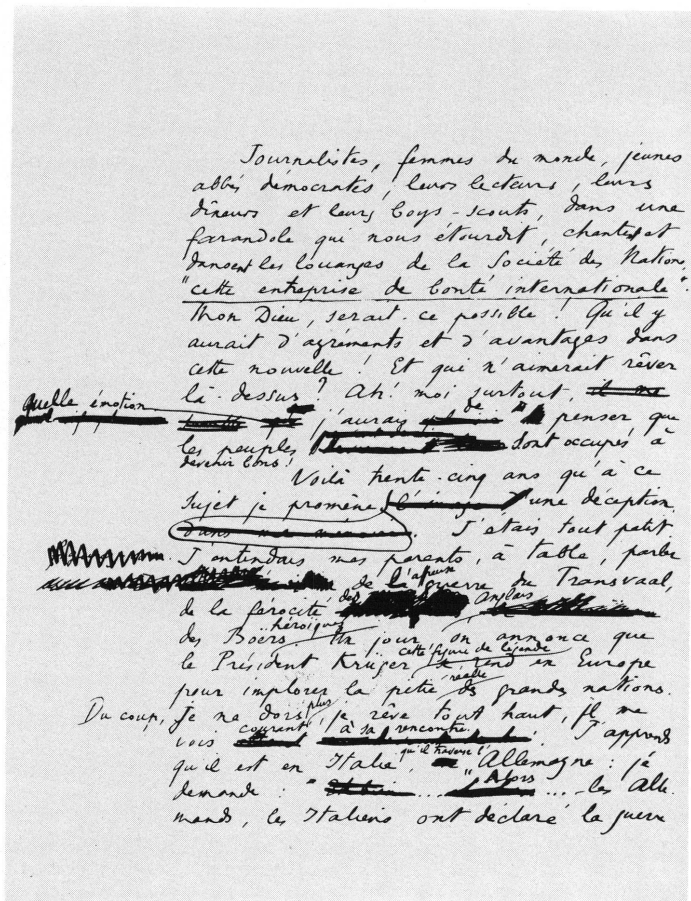 Journalistes, femmes du monde, jeunes
abbés démocrates, leurs lecteurs, leurs
dîneurs et leurs boys-scouts, dans une
farandole qui nous étourdit, chantent
dansent les louanges de la Société des Nations,
"cette entreprise de bonté internationale".
Mon Dieu, serait-ce possible ! Qu'il y
aurait d'agréments et d'avantages dans
cette nouvelle ! Et que n'aimerait rêver
là-dessus ? Ah ! moi surtout,
quelle émotion
j'aurais de penser que
les peuples sont occupés à
devenir bons !
Voilà trente-cinq ans qu'à ce
sujet je promène une déception.
J'étais tout petit
J'entendais mes parents, à table, parler
de l'affreuse guerre du Transvaal,
de la férocité des anglais
héroïques
des Boërs. Un jour on annonce que
le Président Krüger cette figure de légende
se rend en Europe
pour implorer la pitié des grandes nations.
Du coup, je ne dors plus, je rêve tout haut, je me
vois courant à sa rencontre. J'apprends
qu'il est en Italie, qu'il traverse l'Allemagne : je
demande : " Alors ... les Alle-
mands, les Italiens ont déclaré la guerre